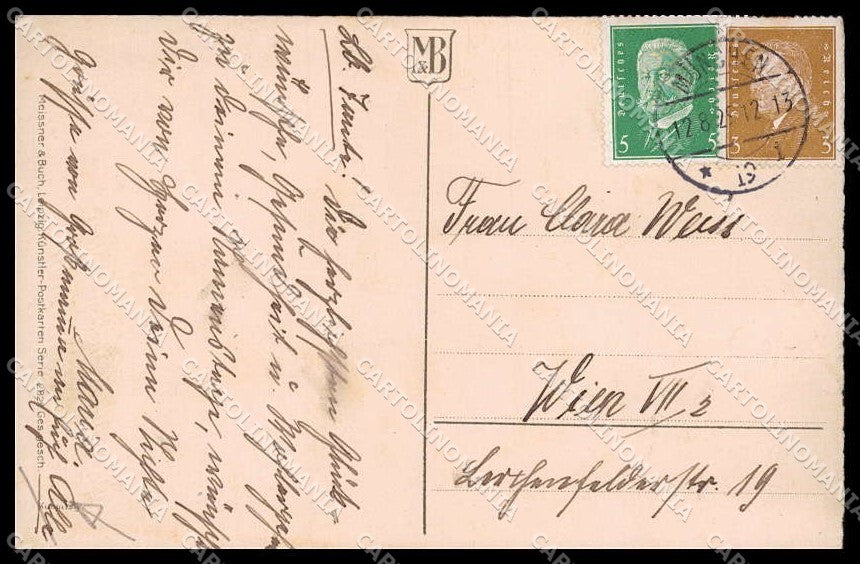 Lb. Tante! Die herzlichsten Glück-
wünsche, Gesundheit u.
zu Deinem Namenstage, wünscht
Dir von Herzen Deine Nichte
Maria.
Grüsse von Grossmama an für Alle
Meissner & Buch, Leipzig, Künstler-Postkarten Serie Ges. gesch.
M & B
Deutsches Reich
5 5
Deutsches Reich
3 3
MÜNCHEN
12.8.2 12-13
* 13 *
Frau Clara Weiss
Wien VIII/2
Lerchenfelderstr. 19
CARTOLINOMANIA